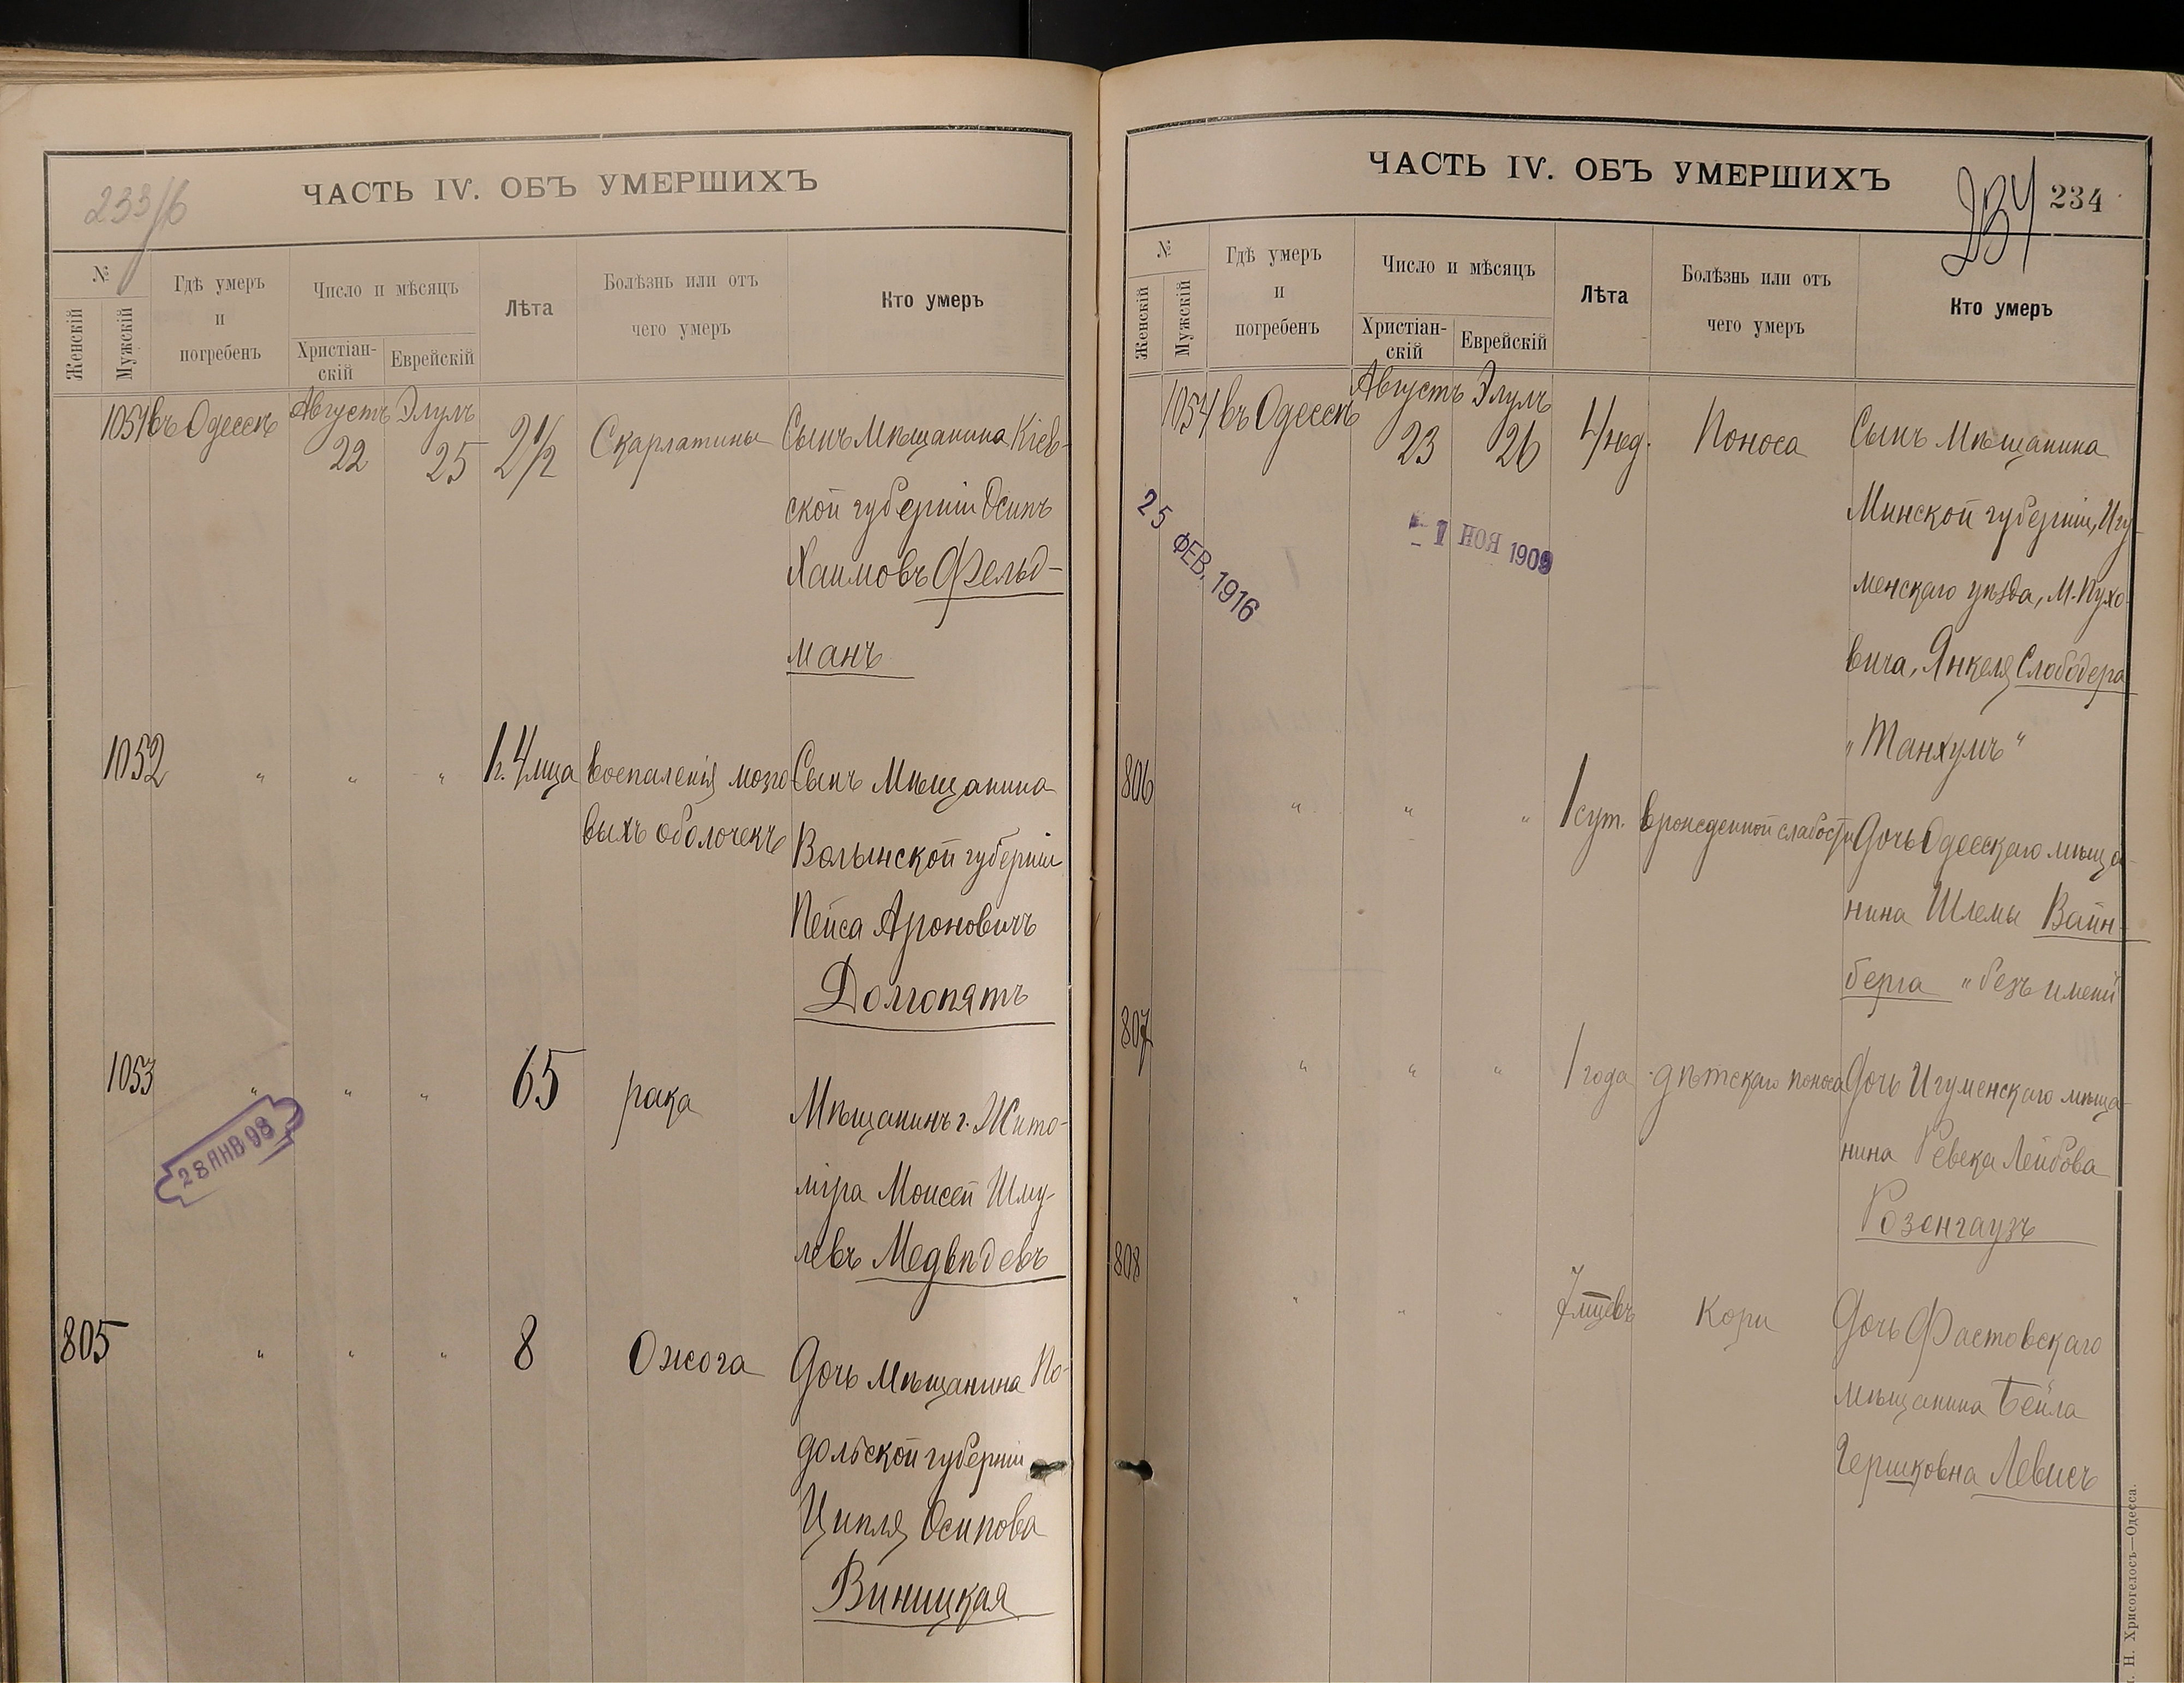 233/б
ЧАСТЬ IV. ОБЪ УМЕРШИХЪ
№
Женскій
Мужскій
Гдѣ умеръ
и
погребенъ
Число и мѣсяцъ
Христіан-
скій
Еврейскій
Лѣта
Болѣзнь или отъ
чего умеръ
Кто умеръ
1051 въ Одессѣ Августъ 22 Элулъ 25 2 1/2 Скарлатины Сынъ Мѣщанина Кіев-
ской губерніи Осипъ
Хаимовъ Фельд-
манъ
1052 " " " 1 г. 4 мца воспаленія мозго Сынъ Мѣщанина
выхъ оболочекъ Волынской губерніи
Пейса Ароновичъ
Долгопятъ
1053 " " " 65 рака Мѣщанинъ г. Жито-
міра Моисей Шму-
левъ Медвѣдевъ
28 ЯНВ 98
805 " " " 8 Ожога Дочь Мѣщанина По-
дольской губерніи
Ципля Осипова
Виницкая
ЧАСТЬ IV. ОБЪ УМЕРШИХЪ
234
234
№
Женскій
Мужскій
Гдѣ умеръ
и
погребенъ
Число и мѣсяцъ
Христіан-
скій
Еврейскій
Лѣта
Болѣзнь или отъ
чего умеръ
Кто умеръ
1054 въ Одессѣ Августъ 23 Элулъ 26 4 нед. Поноса Сынъ Мѣщанина
Минской губерніи, Игу-
менскаго уѣзда, М. Пухо-
вича, Янкеля Слободера
"Танхумъ"
25 ФЕВ. 1916
- 1 НОЯ 1909
806 " " " 1 сут. врожденной слабости Дочь Одесскаго мѣща-
нина Шлемы Вайн-
берга "безъ имени"
807 " " " 1 года дѣтскаго поноса Дочь Игуменскаго мѣща-
нина Ревека Лейбова
Розенгаузъ
808 " " " 7 мцевъ Кори Дочь Фастовскаго
мѣщанина Бейла
Гершковна Левисъ
Н. Хрисогелосъ—Одесса.